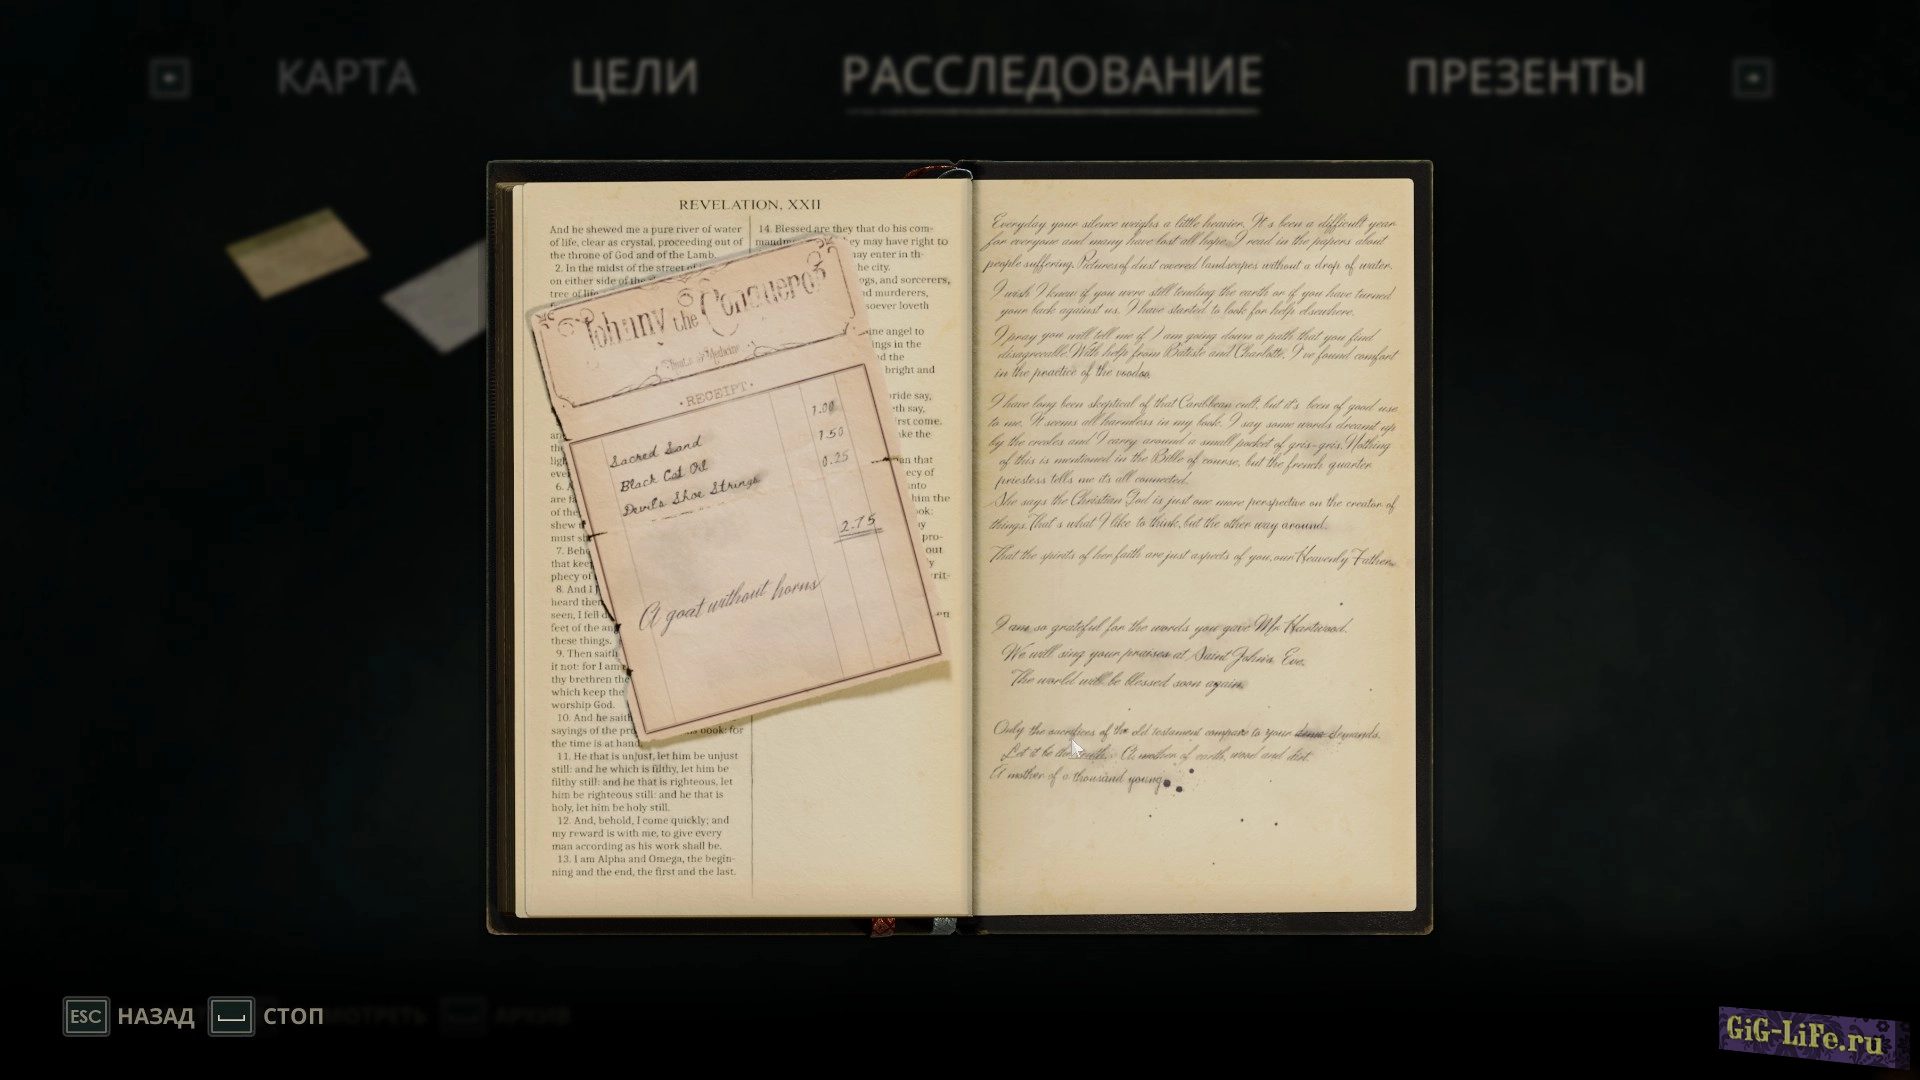 КАРТА
ЦЕЛИ
РАССЛЕДОВАНИЕ
ПРЕЗЕНТЫ
REVELATION, XXII
And he shewed me a pure river of water
of life, clear as crystal, proceeding out of
the throne of God and of the Lamb.
2. In the midst of the street of
on either side of the
tree of life
6. A
are
of the
shew
must
7. Beh
that kee
phecy of
8. And I
heard the
seen, I fell d
feet of the an
these things.
9. Then saith
it not: for I am
thy brethren the
which keep the
worship God.
10. And he saith
sayings of the book: for
the time is at hand
11. He that is unjust, let him be unjust
still: and he which is filthy, let him be
filthy still: and he that is righteous, let
him be righteous still: and he that is
holy, let him be holy still.
12. And, behold, I come quickly; and
my reward is with me, to give every
man according as his work shall be.
13. I am Alpha and Omega, the begin-
ning and the end, the first and the last.
14. Blessed are they that do his com-
they may have right to
may enter in th-
the city.
and sorcerers,
nd murderers,
soever loveth
ine angel to
ings in the
d the
bright and
ride say,
eth say,
rst come.
ke the
an that
ecy of
nto
him the
ok:
y
pro-
out
ly
rit-
en
Johnny the Conqueror
Medicine
·RECEIPT·
Sacred Sand 1.00
Black Cat Oil 1.50
Devil's Shoe Strings 0.25
2.75
A goat without horns
Everyday your silence weighs a little heavier. It's been a difficult year
for everyone and many have lost all hope. I read in the papers about
people suffering. Pictures of dust covered landscapes without a drop of water.
I wish I knew if you were still tending the earth or if you have turned
your back against us. I have started to look for help elsewhere.
I pray you will tell me if I am going down a path that you find
disagreeable. With help from Batiste and Charlotte, I've found comfort
in the practice of the voodoo.
I have long been skeptical of that Caribbean cult, but it's been of good use
to me. It seems all harmless in my book. I say some words dreamt up
by the creoles and I carry around a small pocket of gris-gris. Nothing
of this is mentioned in the Bible of course, but the french quarter
priestess tells me it's all connected.
She says the Christian God is just one more perspective on the creator of
things. That's what I like to think, but the other way around.
That the spirits of her faith are just aspects of you, our Heavenly Father.
I am so grateful for the words you gave Mr Hartwood.
We will sing your praises at Saint John's Eve.
The world will be blessed soon again.
Only the sacrifices of the old testament compare to your demands.
Let it be the A mother of earth, wood and dirt.
A mother of a thousand young
ESC НАЗАД
СТОП
СМОТРЕТЬ
АРХИВ
GiG-LiFe.ru